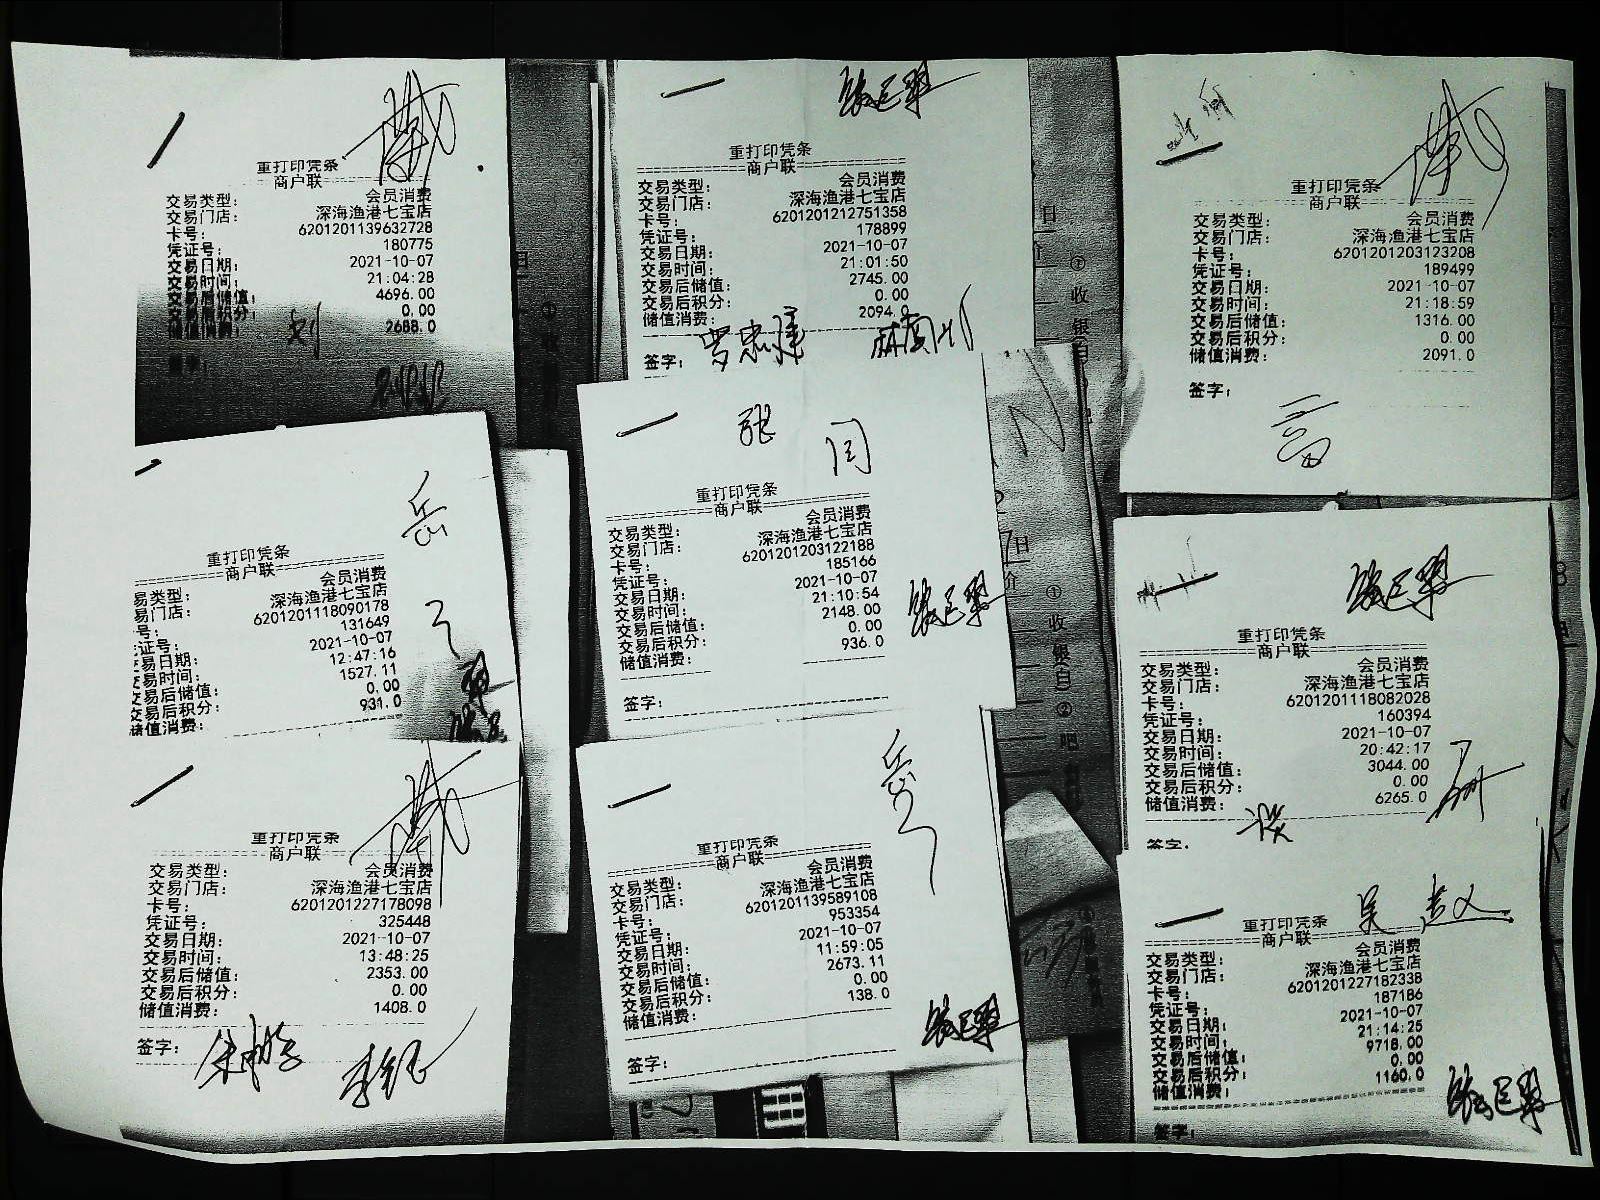 重打印凭条
商户联
交易类型： 会员消费
交易门店： 深海渔港七宝店
卡号： 6201201139632728
凭证号： 180775
交易日期： 2021-10-07
交易时间： 21:04:28
交易后储值： 4696.00
交易后积分： 0.00
储值消费： 2688.0
签字：
刘
重打印凭条
商户联
交易类型： 会员消费
交易门店： 深海渔港七宝店
卡号： 6201201212751358
凭证号： 178899
交易日期： 2021-10-07
交易时间： 21:01:50
交易后储值： 2745.00
交易后积分： 0.00
储值消费： 2094.0
签字： 罗忠
重打印凭条
商户联
交易类型： 会员消费
交易门店： 深海渔港七宝店
卡号： 6201201203123208
凭证号： 189499
交易日期： 2021-10-07
交易时间： 21:18:59
交易后储值： 1316.00
交易后积分： 0.00
储值消费： 2091.0
签字：
岳
重打印凭条
商户联
易类型： 会员消费
易门店： 深海渔港七宝店
号： 6201201118090178
证号： 131649
交易日期： 2021-10-07
交易时间： 12:47:16
交易后储值： 1527.11
交易后积分： 0.00
储值消费： 931.0
张 闫
重打印凭条
商户联
交易类型： 会员消费
交易门店： 深海渔港七宝店
卡号： 6201201203122188
凭证号： 185166
交易日期： 2021-10-07
交易时间： 21:10:54
交易后储值： 2148.00
交易后积分： 0.00
储值消费： 936.0
签字：
重打印凭条
商户联
交易类型： 会员消费
交易门店： 深海渔港七宝店
卡号： 6201201118082028
凭证号： 160394
交易日期： 2021-10-07
交易时间： 20:42:17
交易后储值： 3044.00
交易后积分： 0.00
储值消费： 6265.0
签字：
重打印凭条
商户联
交易类型： 会员消费
交易门店： 深海渔港七宝店
卡号： 6201201227178098
凭证号： 325448
交易日期： 2021-10-07
交易时间： 13:48:25
交易后储值： 2353.00
交易后积分： 0.00
储值消费： 1408.0
签字：
岳
重打印凭条
商户联
交易类型： 会员消费
交易门店： 深海渔港七宝店
卡号： 6201201139589108
凭证号： 953354
交易日期： 2021-10-07
交易时间： 11:59:05
交易后储值： 2673.11
交易后积分： 0.00
储值消费： 138.0
签字：
吴
重打印凭条
商户联
交易类型： 会员消费
交易门店： 深海渔港七宝店
卡号： 6201201227182338
凭证号： 187186
交易日期： 2021-10-07
交易时间： 21:14:25
交易后储值： 9718.00
交易后积分： 0.00
储值消费： 1160.0
签字：